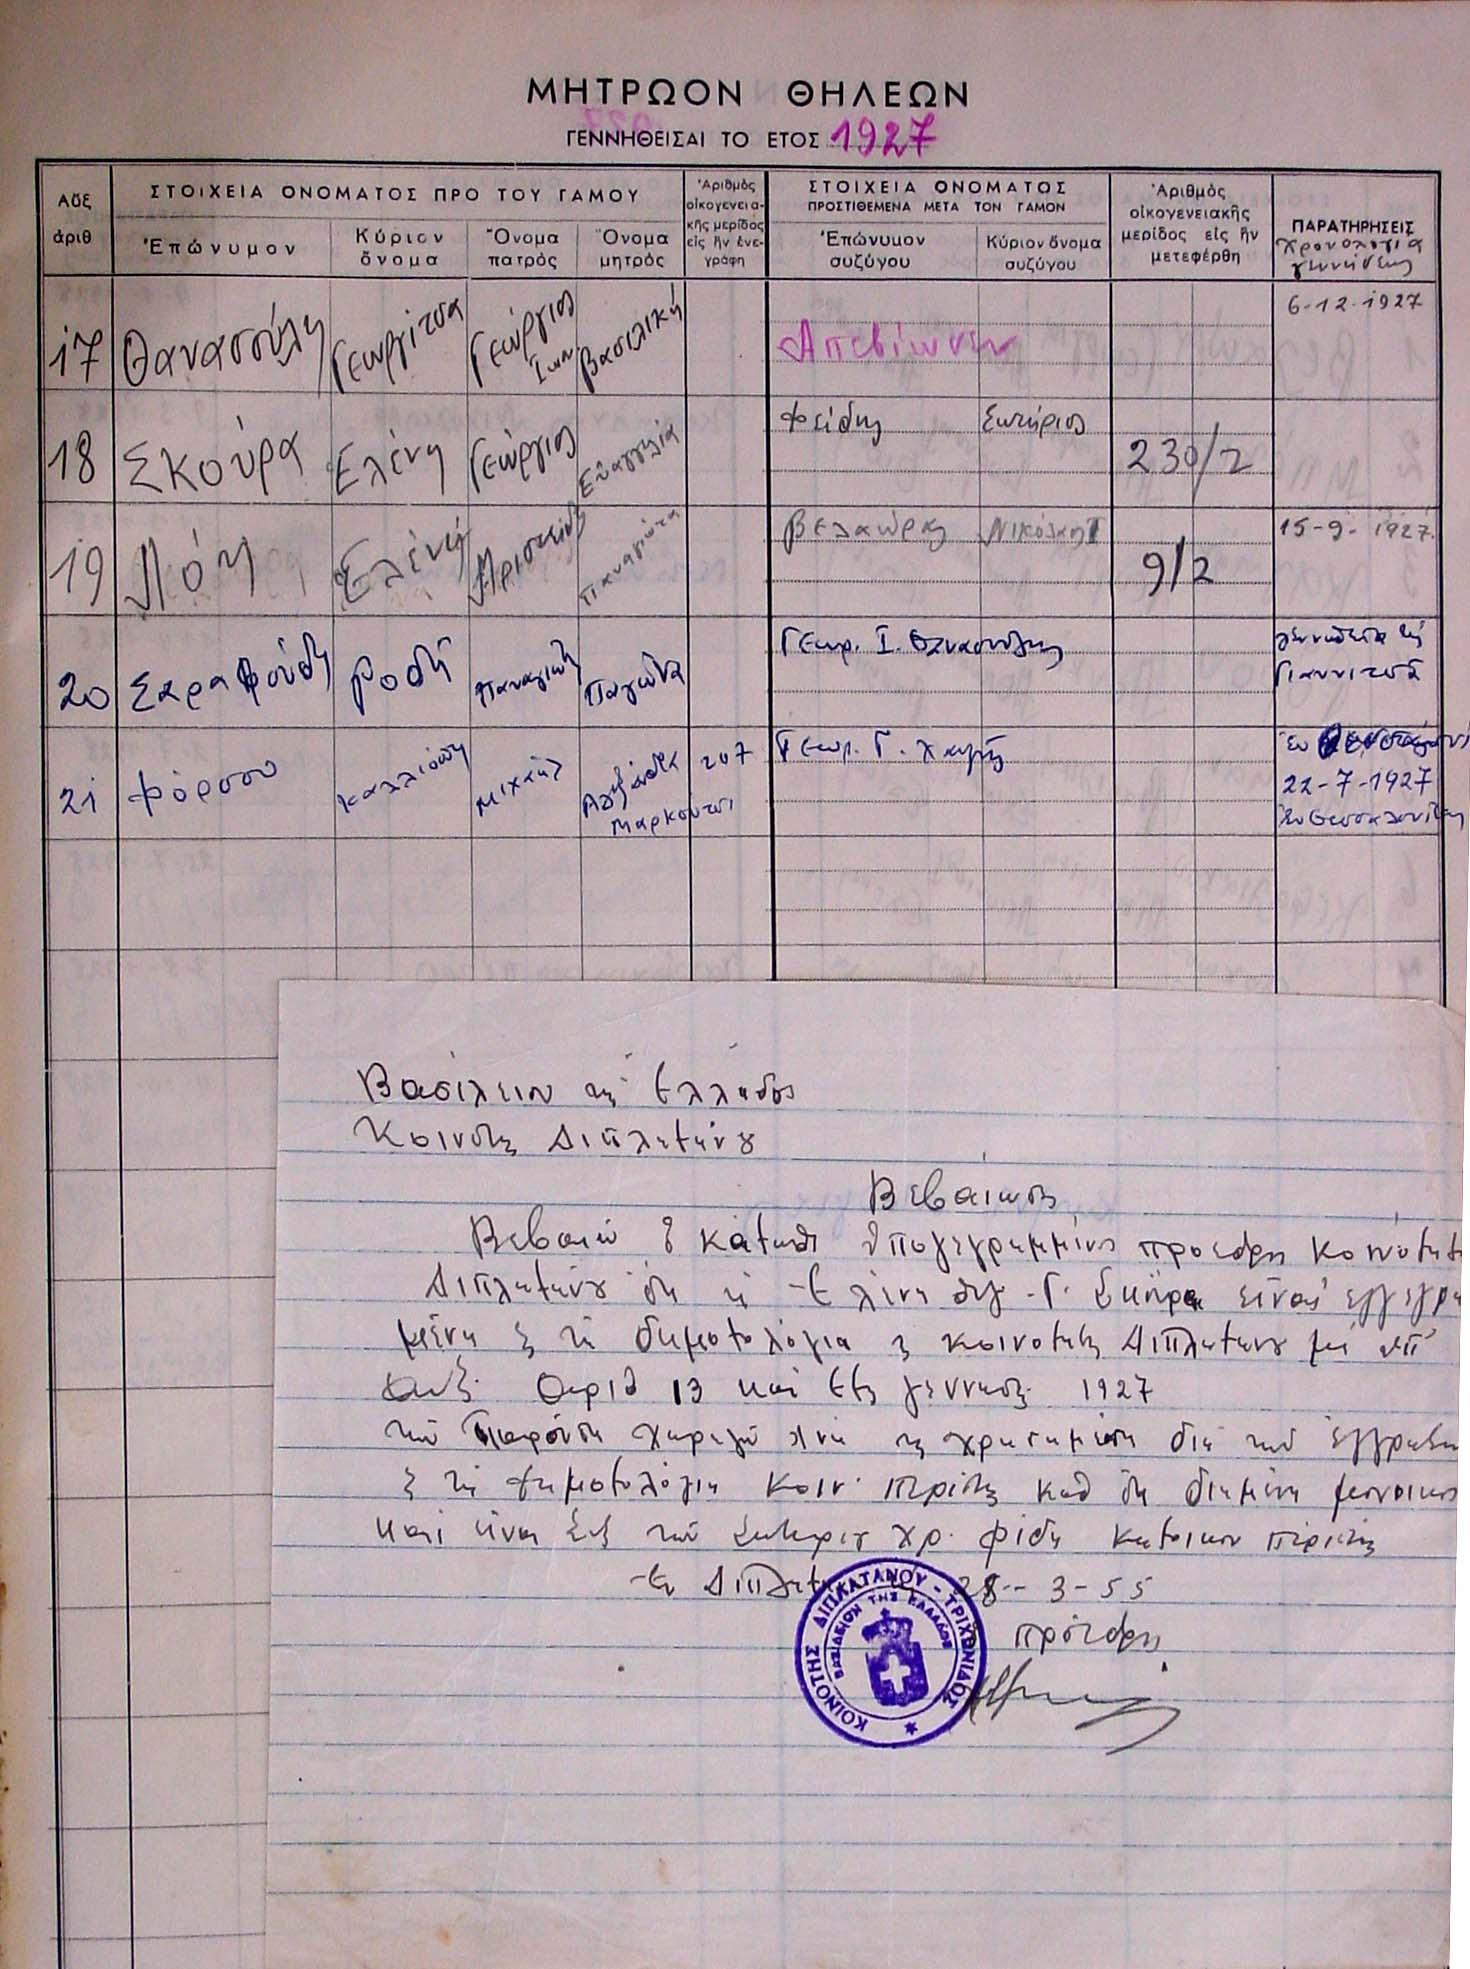 ΜΗΤΡΩΟΝ ΘΗΛΕΩΝ
ΓΕΝΝΗΘΕΙΣΑΙ ΤΟ ΕΤΟΣ 1927
Αὔξ ἀριθ
ΣΤΟΙΧΕΙΑ ΟΝΟΜΑΤΟΣ ΠΡΟ ΤΟΥ ΓΑΜΟΥ
Ἐπώνυμον
Κύριον ὄνομα
Ὄνομα πατρός
Ὄνομα μητρός
Ἀριθμὸς οἰκογενεια-
κῆς μερίδος
εἰς ἣν ἐνε-
γράφη
ΣΤΟΙΧΕΙΑ ΟΝΟΜΑΤΟΣ
ΠΡΟΣΤΙΘΕΜΕΝΑ ΜΕΤΑ ΤΟΝ ΓΑΜΟΝ
Ἐπώνυμον συζύγου
Κύριον ὄνομα συζύγου
Ἀριθμὸς
οἰκογενειακῆς
μερίδος εἰς ἣν
μετεφέρθη
ΠΑΡΑΤΗΡΗΣΕΙΣ
Χρονολογία
γεννήσεως
17 Θανασούλη Γεωργίτσα Γεώργιος Ἰωαν. Βασιλική Ἀπεβίωσεν 6-12-1927
18 Σκούρα Ἑλένη Γεώργιος Εὐαγγελία Φείδης Σωτήριος 230/2
19 Ἑλένη Ἀριστείδης Παναγιώτα Νικόλαος 9/2 15-9-1927
20 Σαραφούδη Ροδή Παναγιώτη Παγώνα Γεωρ. Ι. Θανασούλης
Γιαννιτσά
21 Φόρσου Καλλιόπη Μιχαήλ 207 Γεωρ. Γ.
Μαρκούτσι
22-7-1927
Ἐν Θεσσαλονίκη
Βασίλειον της Ελλάδος
Κοινότης Διπλατάνου
Βεβαίωσις
Βεβαιώ ὁ κάτωθι ὑπογεγραμμένος πρόεδρος Κοινότητ
Διπλατάνου ὅτι ἡ Ελένη θυγ. Γ. Σκούρα εἶναι ἐγγεγρα
μένη εἰς τὰ δημοτολόγια της κοινότητος Διπλατάνου μέ ὑπ'
αυξ. αριθ 13 και έτος γεννήσ. 1927
την παρούσα χορηγώ ίνα της χρησιμεύση δια την ἐγγραφη
εις τα δημοτολόγια Κοιν.
και είναι σύζ. του Σωτηρίου Χρ. Φίδη κατοίκου
Εν Διπλατ 28-3-55
πρόεδρος
ΚΟΙΝΟΤΗΣ ΔΙΠΛΑΤΑΝΟΥ - ΤΡΙΧΩΝΙΔΟΣ
ΒΑΣΙΛΕΙΟΝ ΤΗΣ ΕΛΛΑΔΟΣ